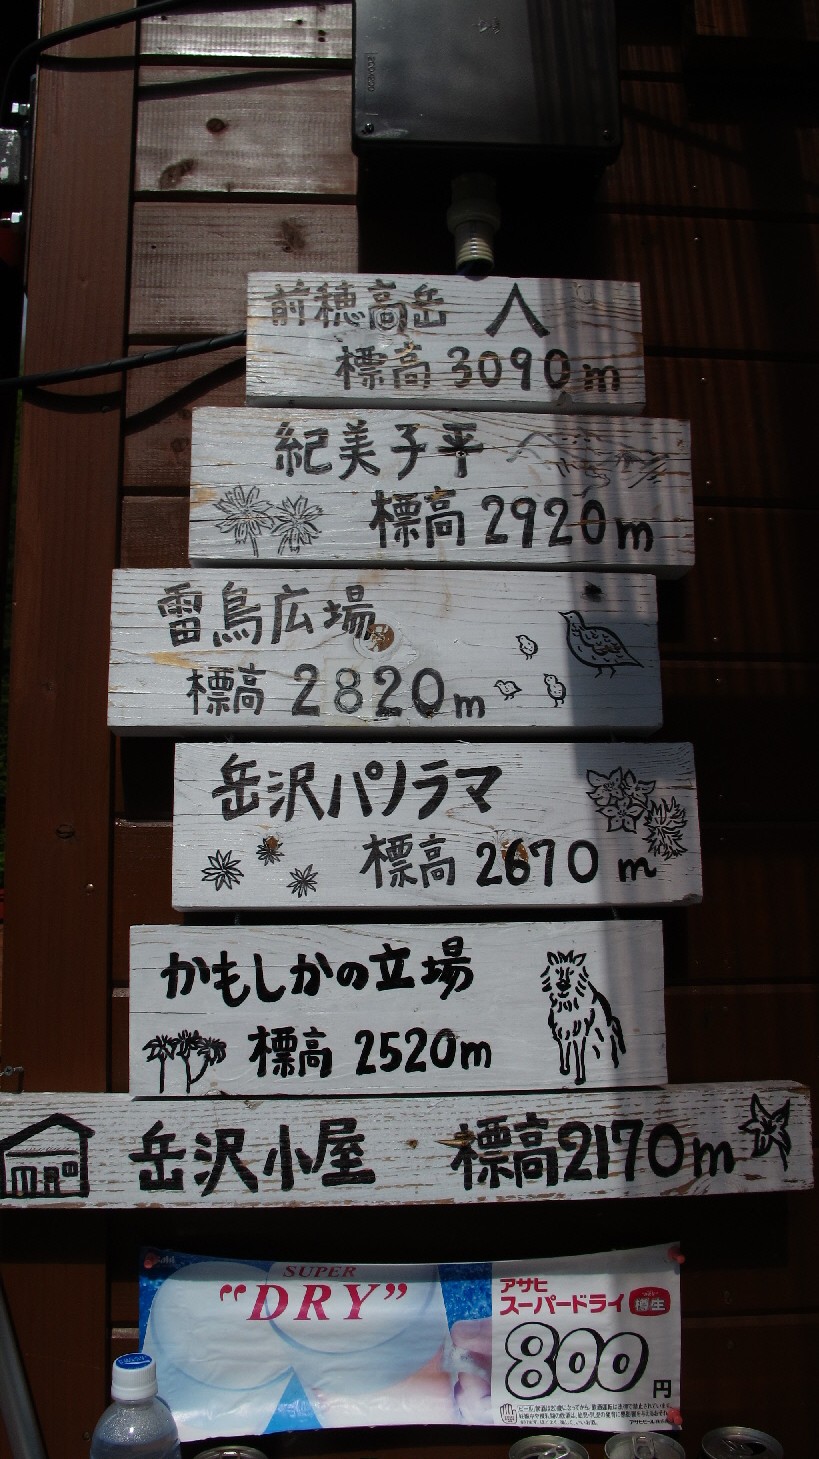 前穂高岳
標高 3090m
紀美子平
標高 2920m
雷鳥広場
標高 2820m
岳沢パノラマ
標高 2670m
かもしかの立場
標高 2520m
岳沢小屋 標高2170m
SUPER
"DRY"
アサヒ
スーパードライ 樽生
800円